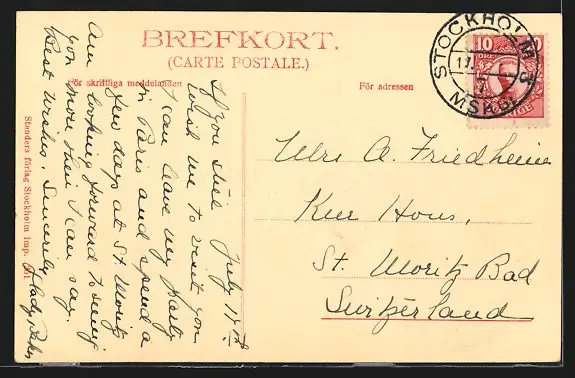 BREFKORT.
(CARTE POSTALE.)
För skriftliga meddelanden
För adressen
STOCKHOLM 3
17. 7
10
ÖRE
July 17th
If you still
wish me to visit you
I can leave my party
in Paris and spend a
few days at St Moritz
Am looking forward to seeing
you more than I can say.
Best wishes. Sincerely
A. Friedheim
Kur Hous,
St. Moritz Bad
Switzerland
Stenders förlag Stockholm Imp.